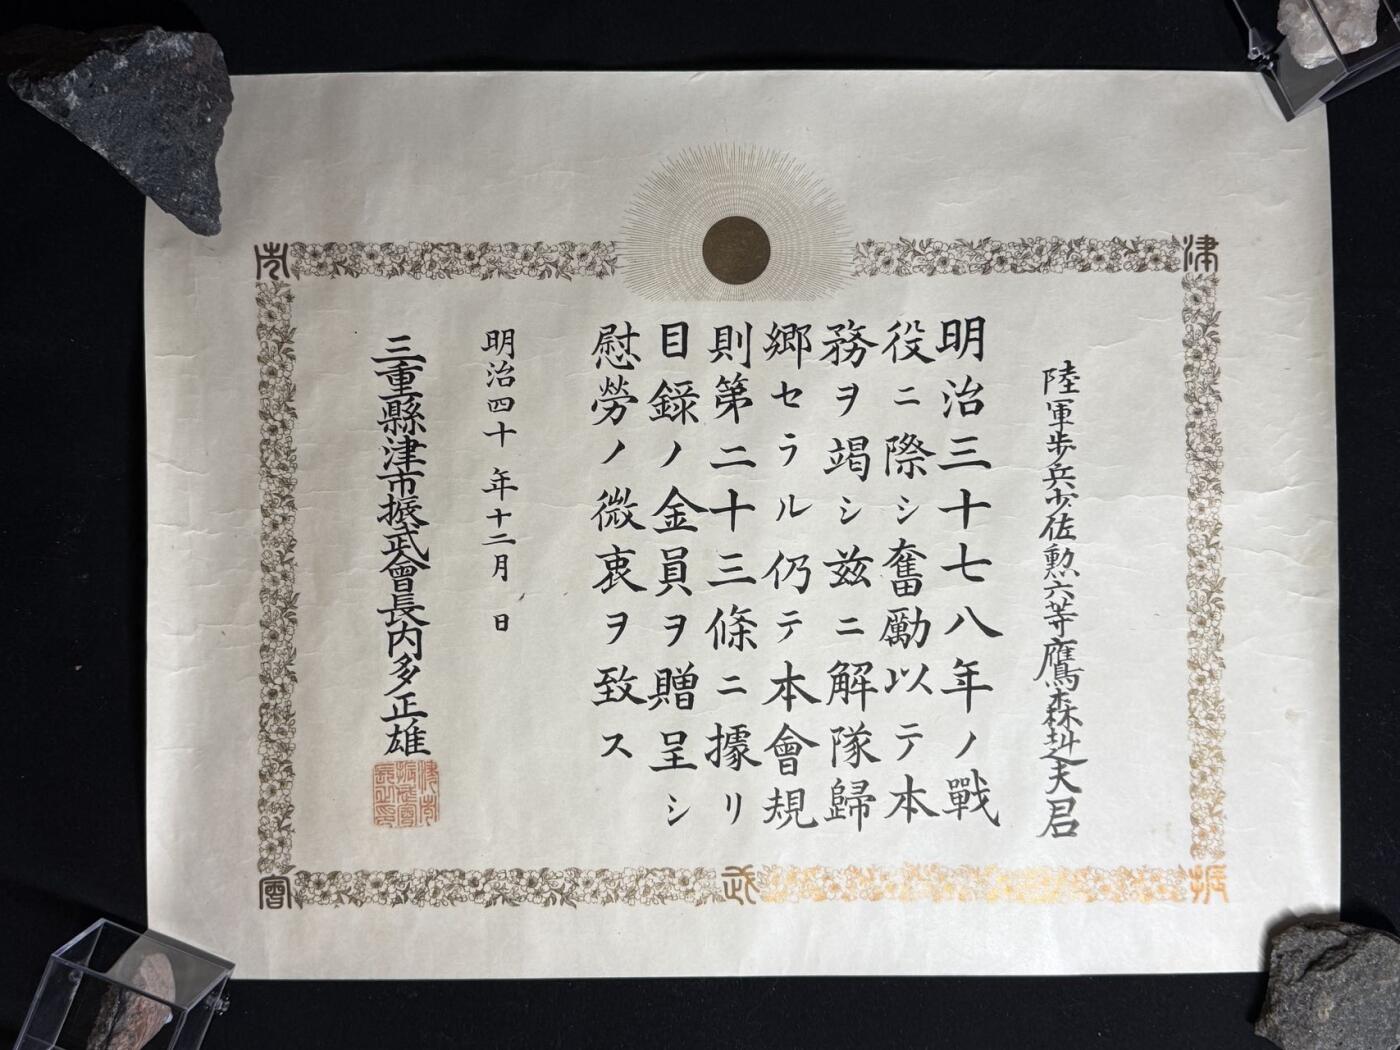 陸軍歩兵少佐勲六等鷹森𨀉夫君
明治三十七八年ノ戰
役ニ際シ奮勵以テ本
務ヲ竭シ茲ニ解隊歸
郷セラル仍テ本會規
則第二十三條ニ據リ
目錄ノ金員ヲ贈呈シ
慰勞ノ微衷ヲ致ス
明治四十年十二月 日
三重縣津市振武會長内多正雄
津市
振武會
長之印
津
市
振
武
會